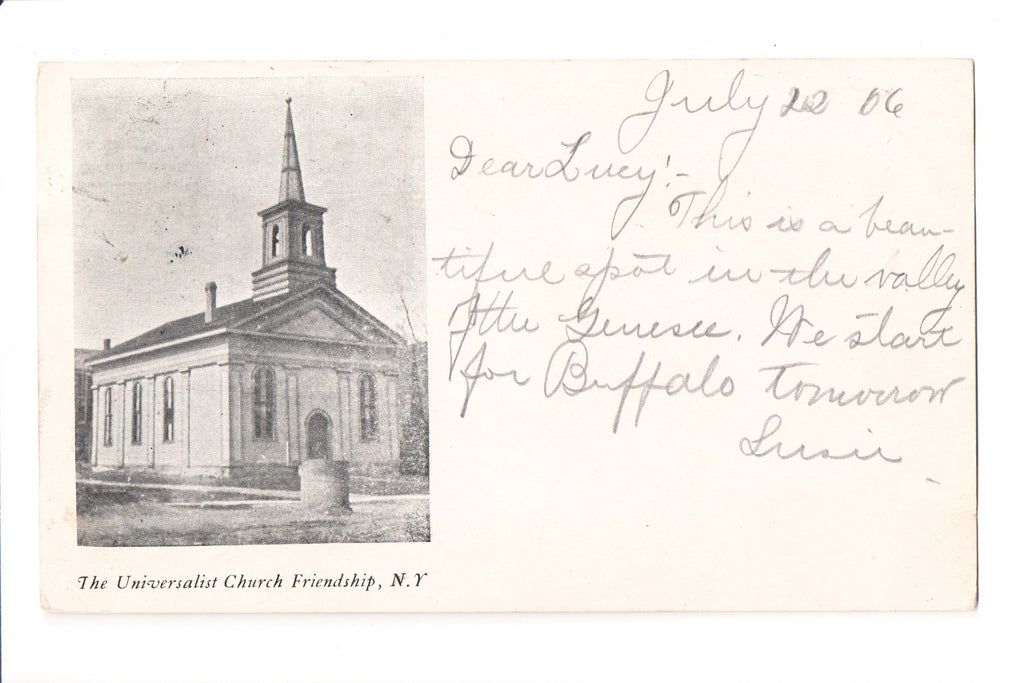 July 22 06
Dear Lucy!-
This is a beau-
tiful spot in the valley
of the Genesee. We start
for Buffalo tomorrow
Susie
The Universalist Church Friendship, N.Y